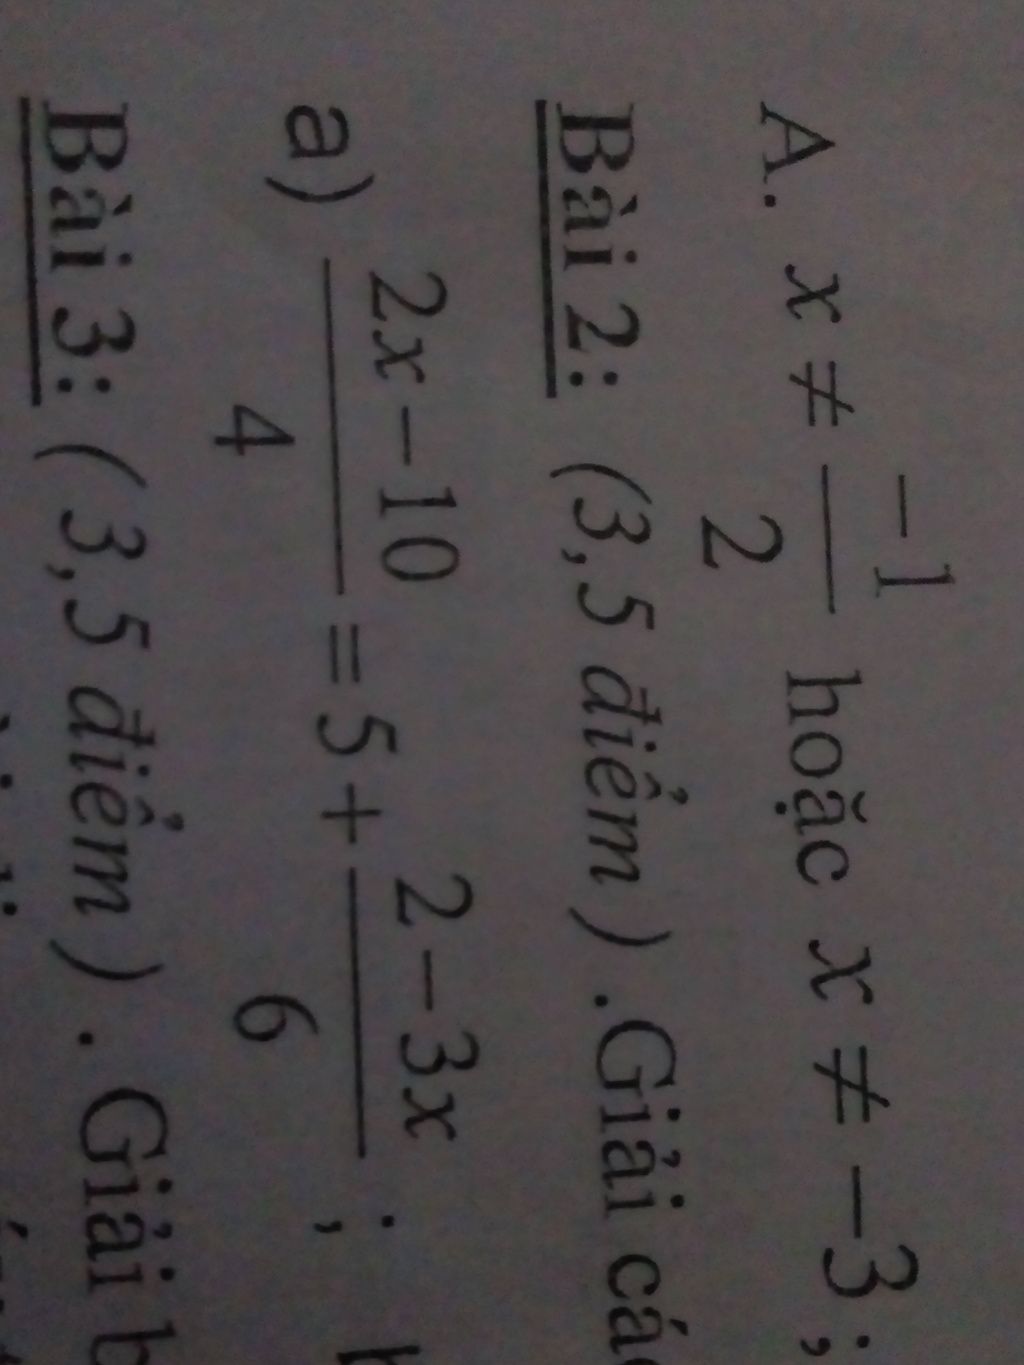 A. x ≠ -1/2 hoặc x ≠ -3 ;
Bài 2: (3,5 điểm) .Giải các
a) (2x-10)/4 = 5 + (2-3x)/6 ;
Bài 3: (3,5 điểm) . Giải b